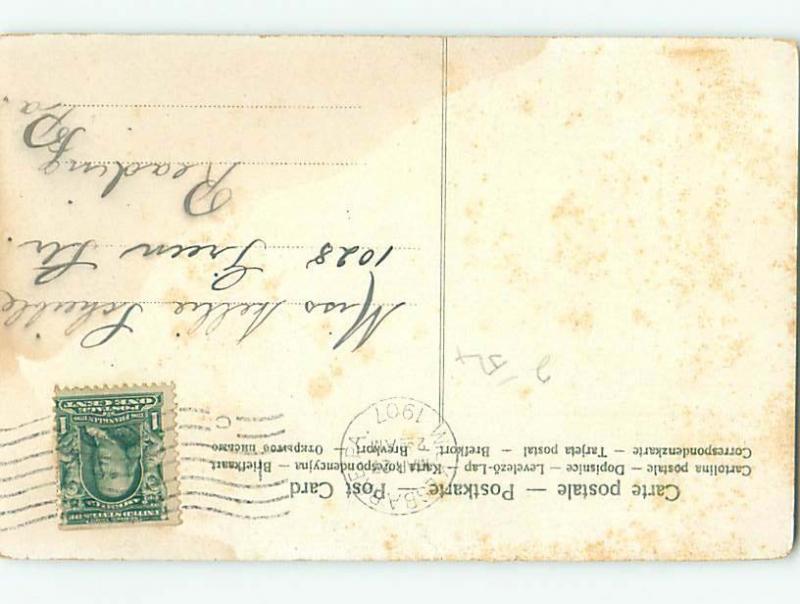 Carte postale — Postkarte — Post Card
Cartolina postale — Dopisnice — Levelező-Lap — Karta Korespondencyjna — Briefkaart
Correspondenzkarte — Tarjeta postal — Brefkort — Brevkort — Открытое письмо
1907
AM
PA.
C
UNITED STATES OF AMERICA
1
1
POSTAGE
ONE CENT
Miss Nellie Scheible
1028 Green St.
Reading
Pa.